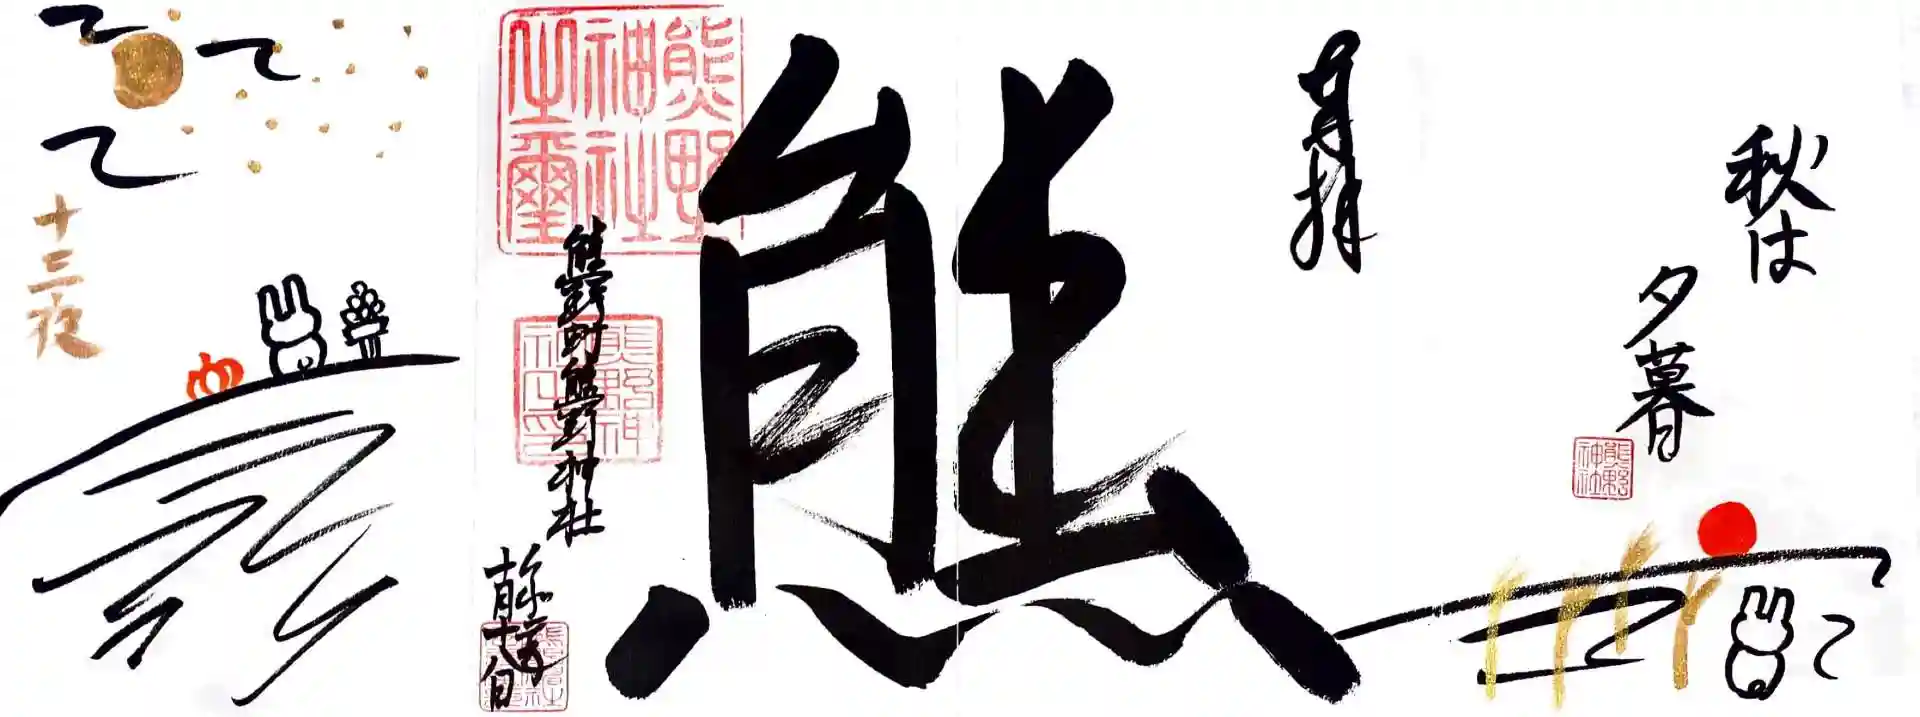 秋は
夕暮
熊野
神社
奉拝
熊
熊野
神社
之璽
熊野町熊野神社
熊野神
社之印
十月十八日
十三夜